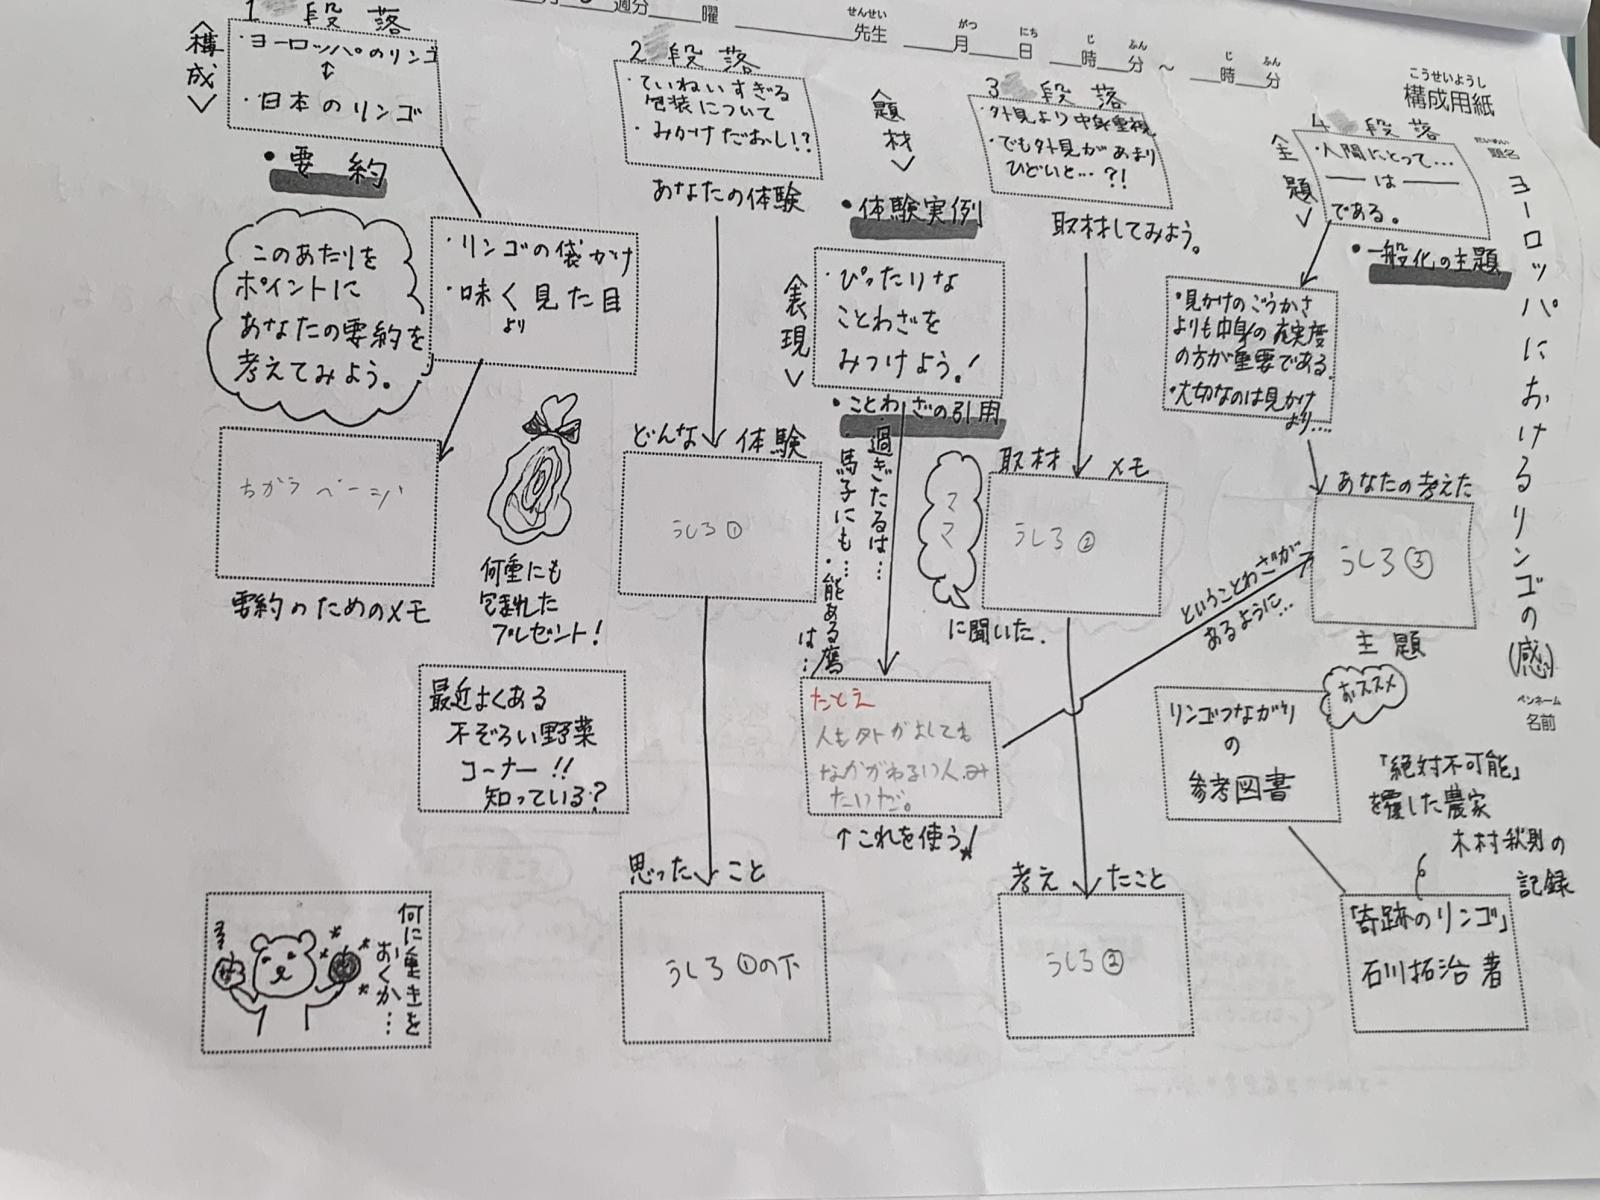 週分
曜
せんせい
先生
がつ
月
にち
日
じ
時
ふん
分
～
じ
時
ふん
分
こうせいようし
構成用紙
だいめい
題名
ヨーロッパにおけるリンゴの(感)
ペンネーム
名前
<構成>
1 段落
・ヨーロッパのリンゴ
↕
・日本のリンゴ
・要約
このあたりを
ポイントに
あなたの要約を
考えてみよう。
・リンゴの袋かけ
・味く見た目
より
ちがうページ
要約のためのメモ
何重にも
包まれた
プレゼント!
最近よくある
不ぞろい野菜
コーナー!!
知っている?
何に重きを
おくか…
2 段落
・ていねいすぎる
包装について
・みかけだおし!?
あなたの体験
どんな体験
うしろ①
思ったこと
うしろ①の下
<題材>
・体験実例
<表現>
・ぴったりな
ことわざを
みつけよう!
・ことわざの引用
・過ぎたるは…
・馬子にも…
・能ある鷹は…
たとえ
人も外がよしても
なかがわるい人み
たいだ。
↑これを使う
3 段落
・外見より中身重視
・でも外見があまり
ひどいと…?!
取材してみよう。
取材メモ
うしろ②
ママ
に聞いた.
考えたこと
うしろ②
<主題>
4 段落
・人間にとって…
── は ──
である。
・一般化の主題
・見かけのごうかさ
よりも中身の充実度
の方が重要である.
・大切なのは見かけ
より….
あなたの考えた
うしろ③
主題
ということわざが
あるように…
おススメ
リンゴつながり
の
参考図書
「絶対不可能」
を覆した農家
木村秋則の
記録
「奇跡のリンゴ」
石川拓治 著